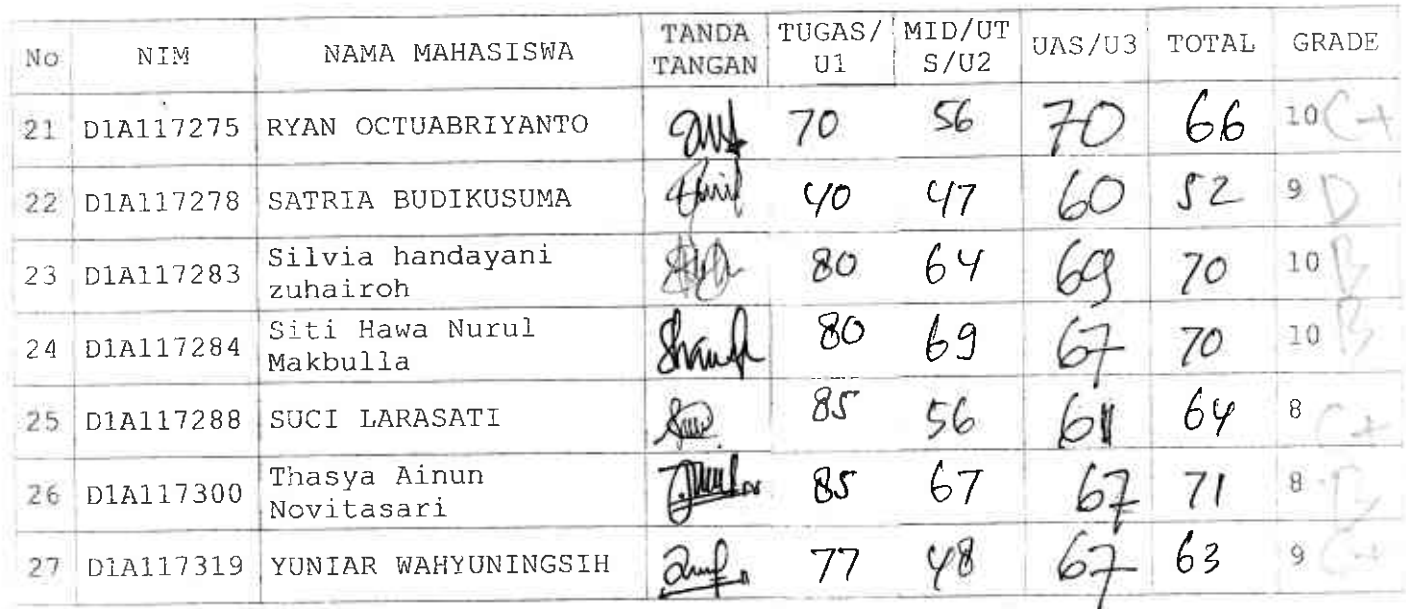 No NIM NAMA MAHASISWA TANDA TANGAN TUGAS/U1 MID/UTS/U2 UAS/U3 TOTAL GRADE
21 D1A117275 RYAN OCTUABRIYANTO 70 56 70 66 10 C+
22 D1A117278 SATRIA BUDIKUSUMA 40 47 60 52 9 D
23 D1A117283 Silvia handayani zuhairoh 80 64 69 70 10 B
24 D1A117284 Siti Hawa Nurul Makbulla 80 69 67 70 10 B
25 D1A117288 SUCI LARASATI 85 56 61 64 8 C+
26 D1A117300 Thasya Ainun Novitasari 85 67 67 71 8 B
27 D1A117319 YUNIAR WAHYUNINGSIH 77 48 67 63 9 C+